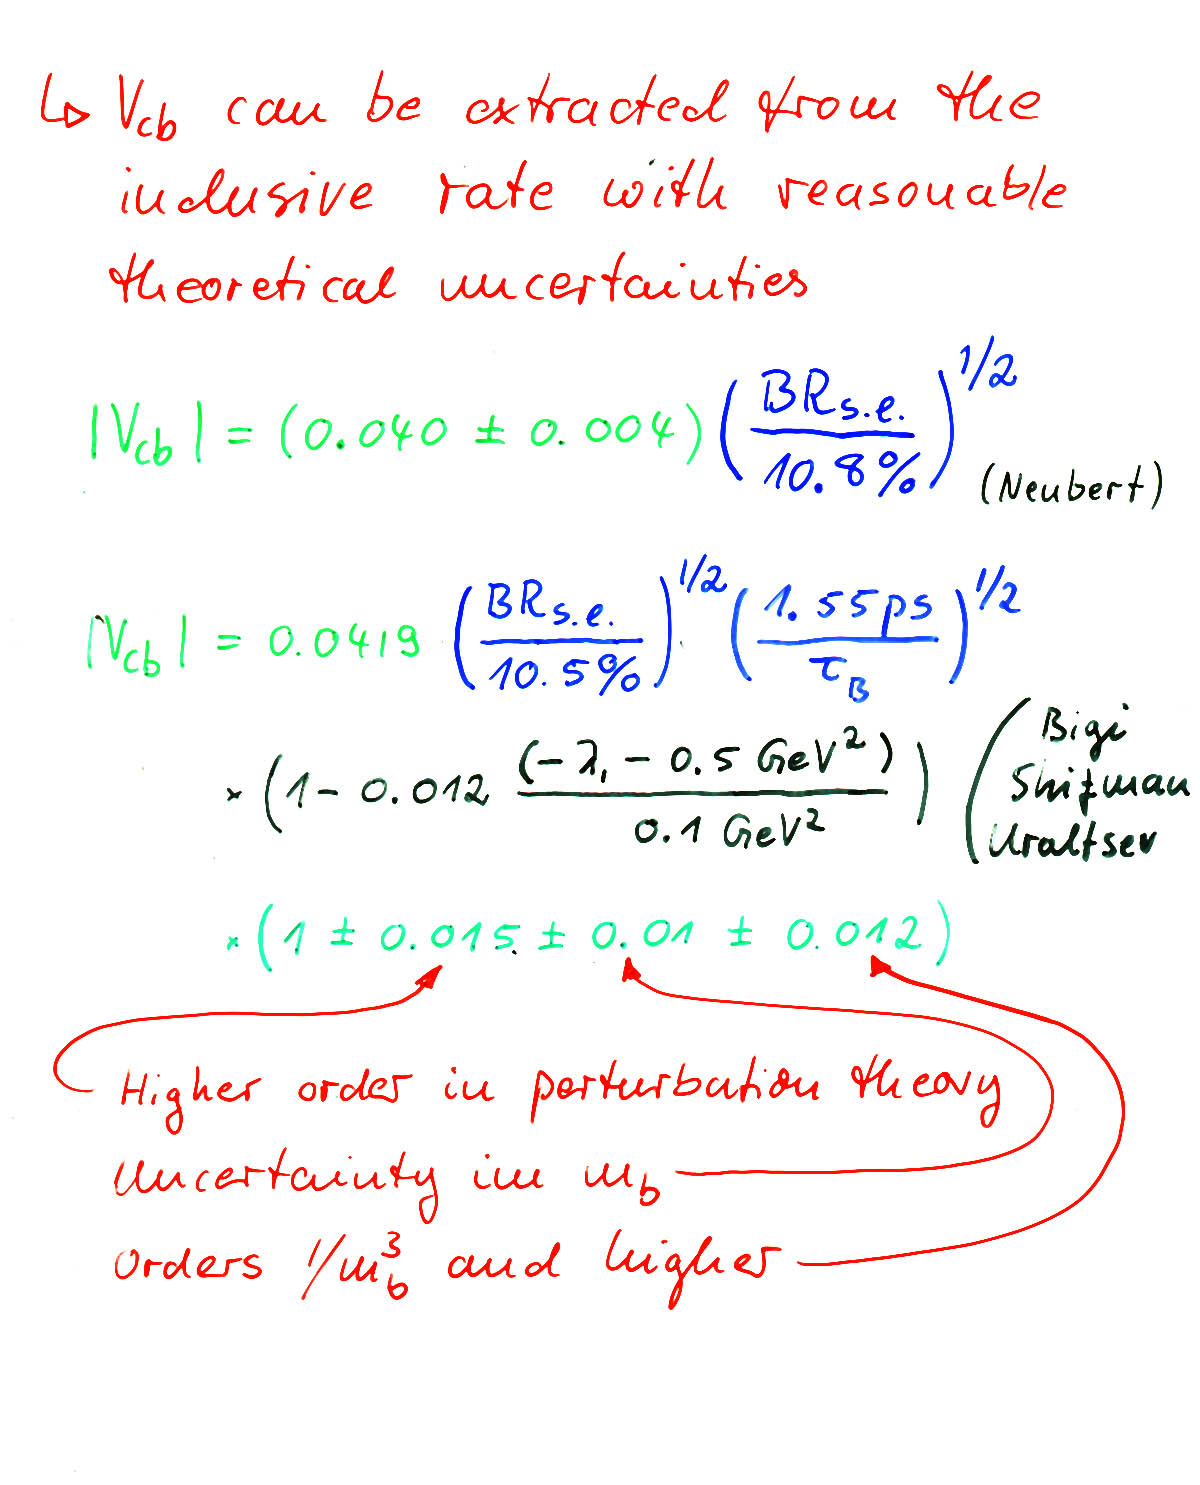 ↳ V_cb can be extracted from the
inclusive rate with reasonable
theoretical uncertainties
|V_cb| = (0.040 ± 0.004) (BR_s.e. / 10.8%)^1/2 (Neubert)
|V_cb| = 0.0419 (BR_s.e. / 10.5%)^1/2 (1.55ps / τ_B)^1/2
× (1 - 0.012 (-λ_1 - 0.5 GeV^2) / 0.1 GeV^2) (Bigi
Shifman
Uraltsev
× (1 ± 0.015 ± 0.01 ± 0.012)
Higher order in perturbation theory
Uncertainty in m_b
Orders 1/m_b^3 and higher